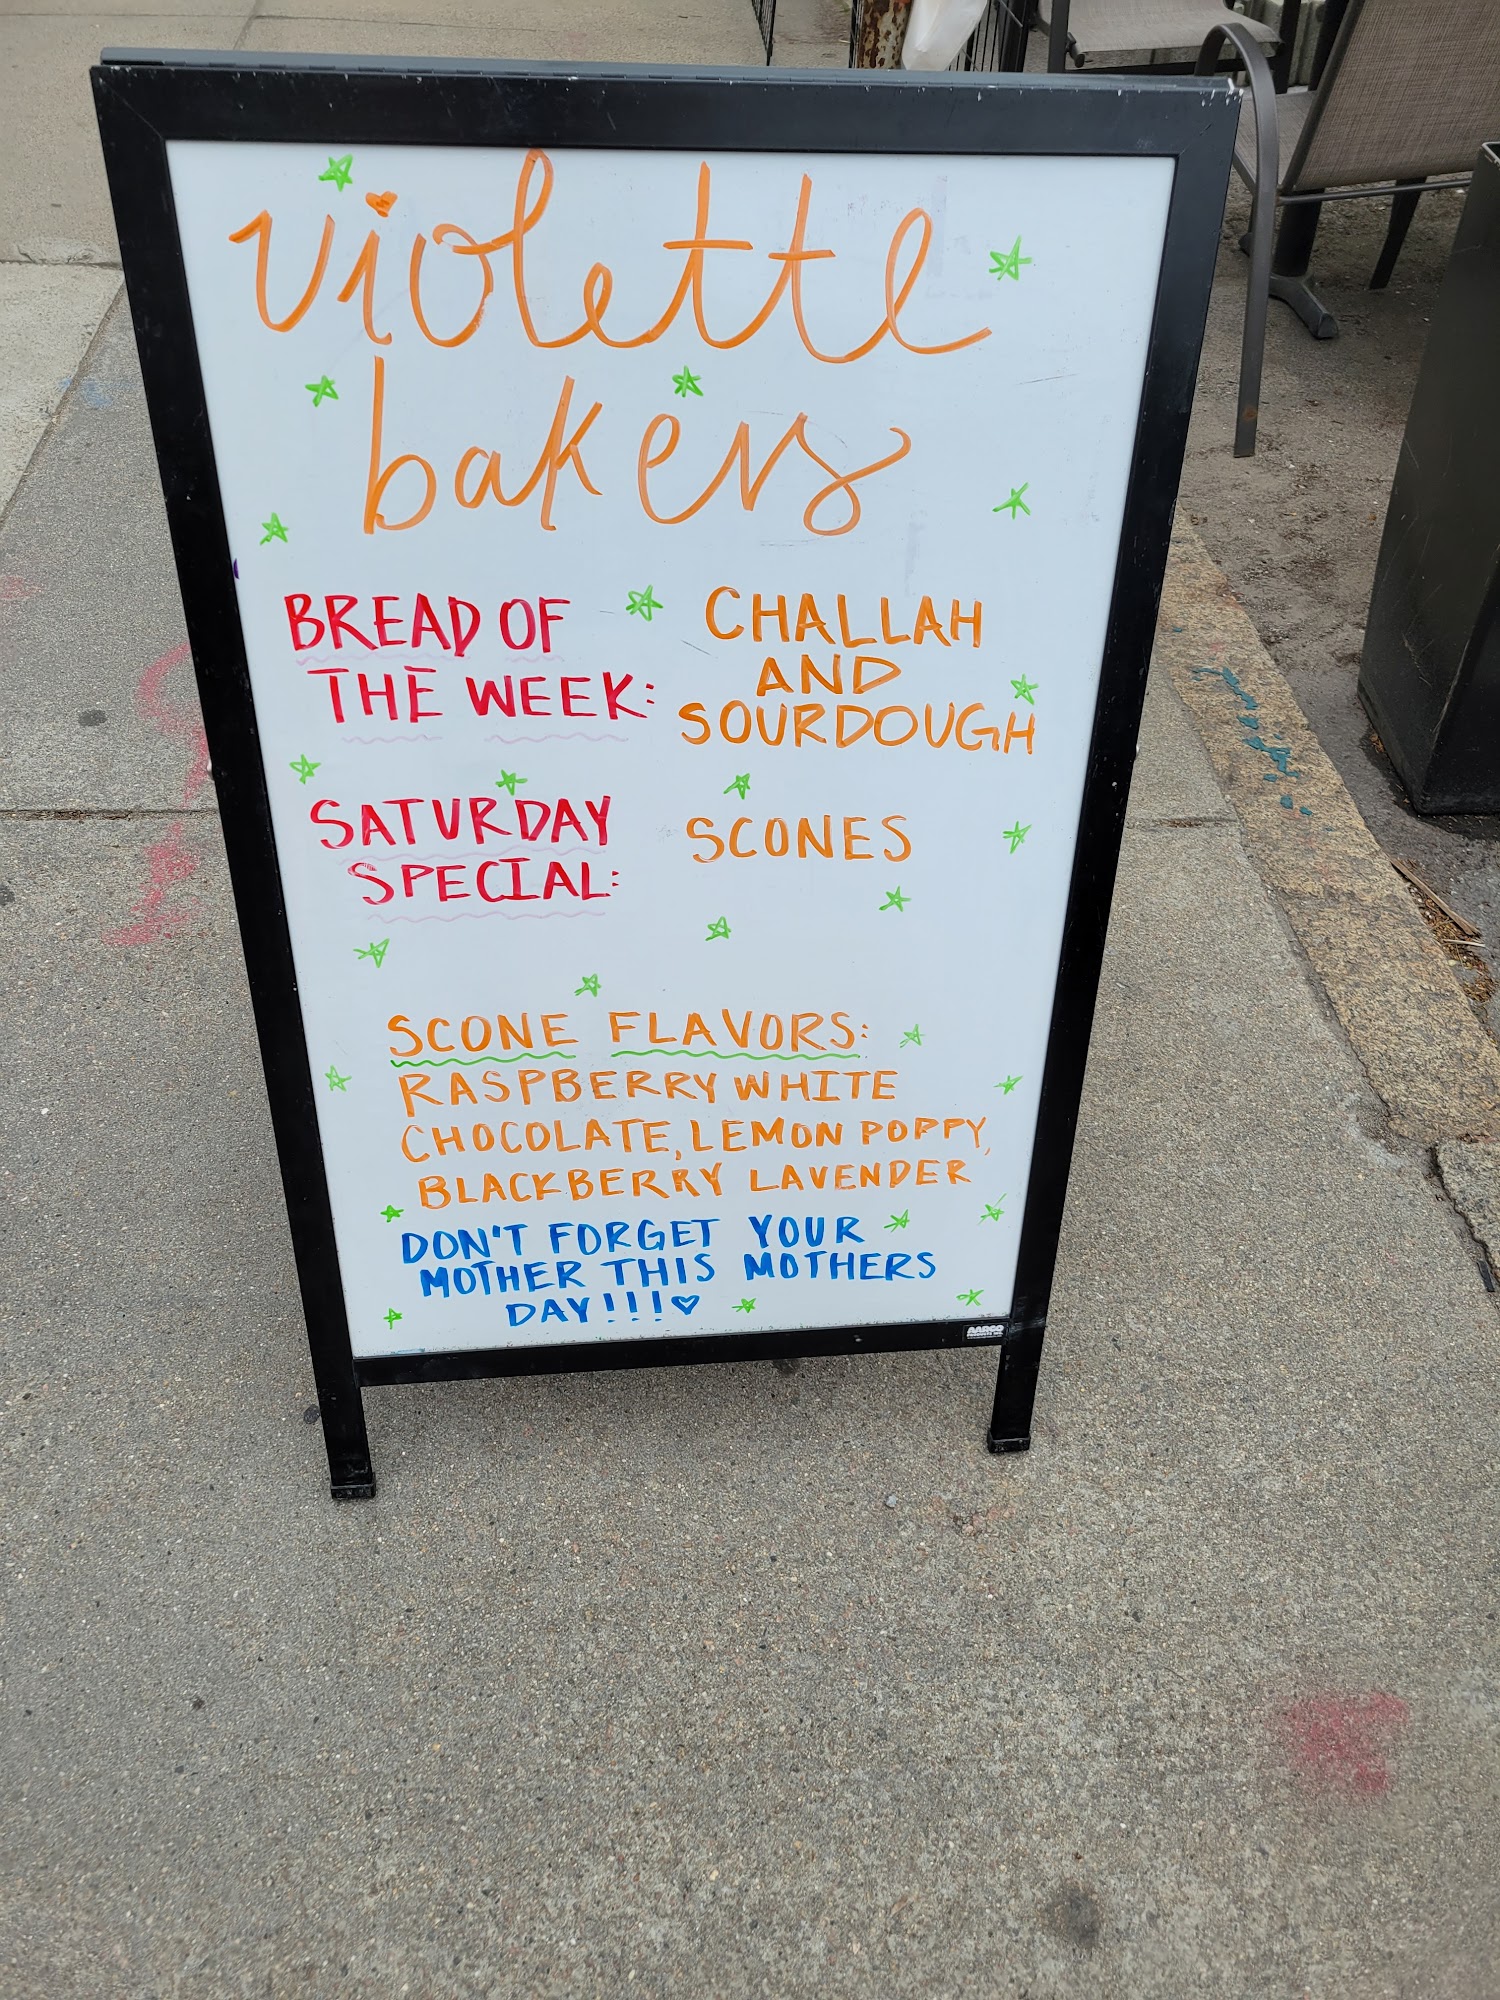 violette
bakers
BREAD OF
THE WEEK:
CHALLAH
AND
SOURDOUGH
SATURDAY
SPECIAL:
SCONES
SCONE FLAVORS:
RASPBERRY WHITE
CHOCOLATE, LEMON POPPY,
BLACKBERRY LAVENDER
DON'T FORGET YOUR
MOTHER THIS MOTHERS
DAY!!!♡
AARCO
PRODUCTS INC.